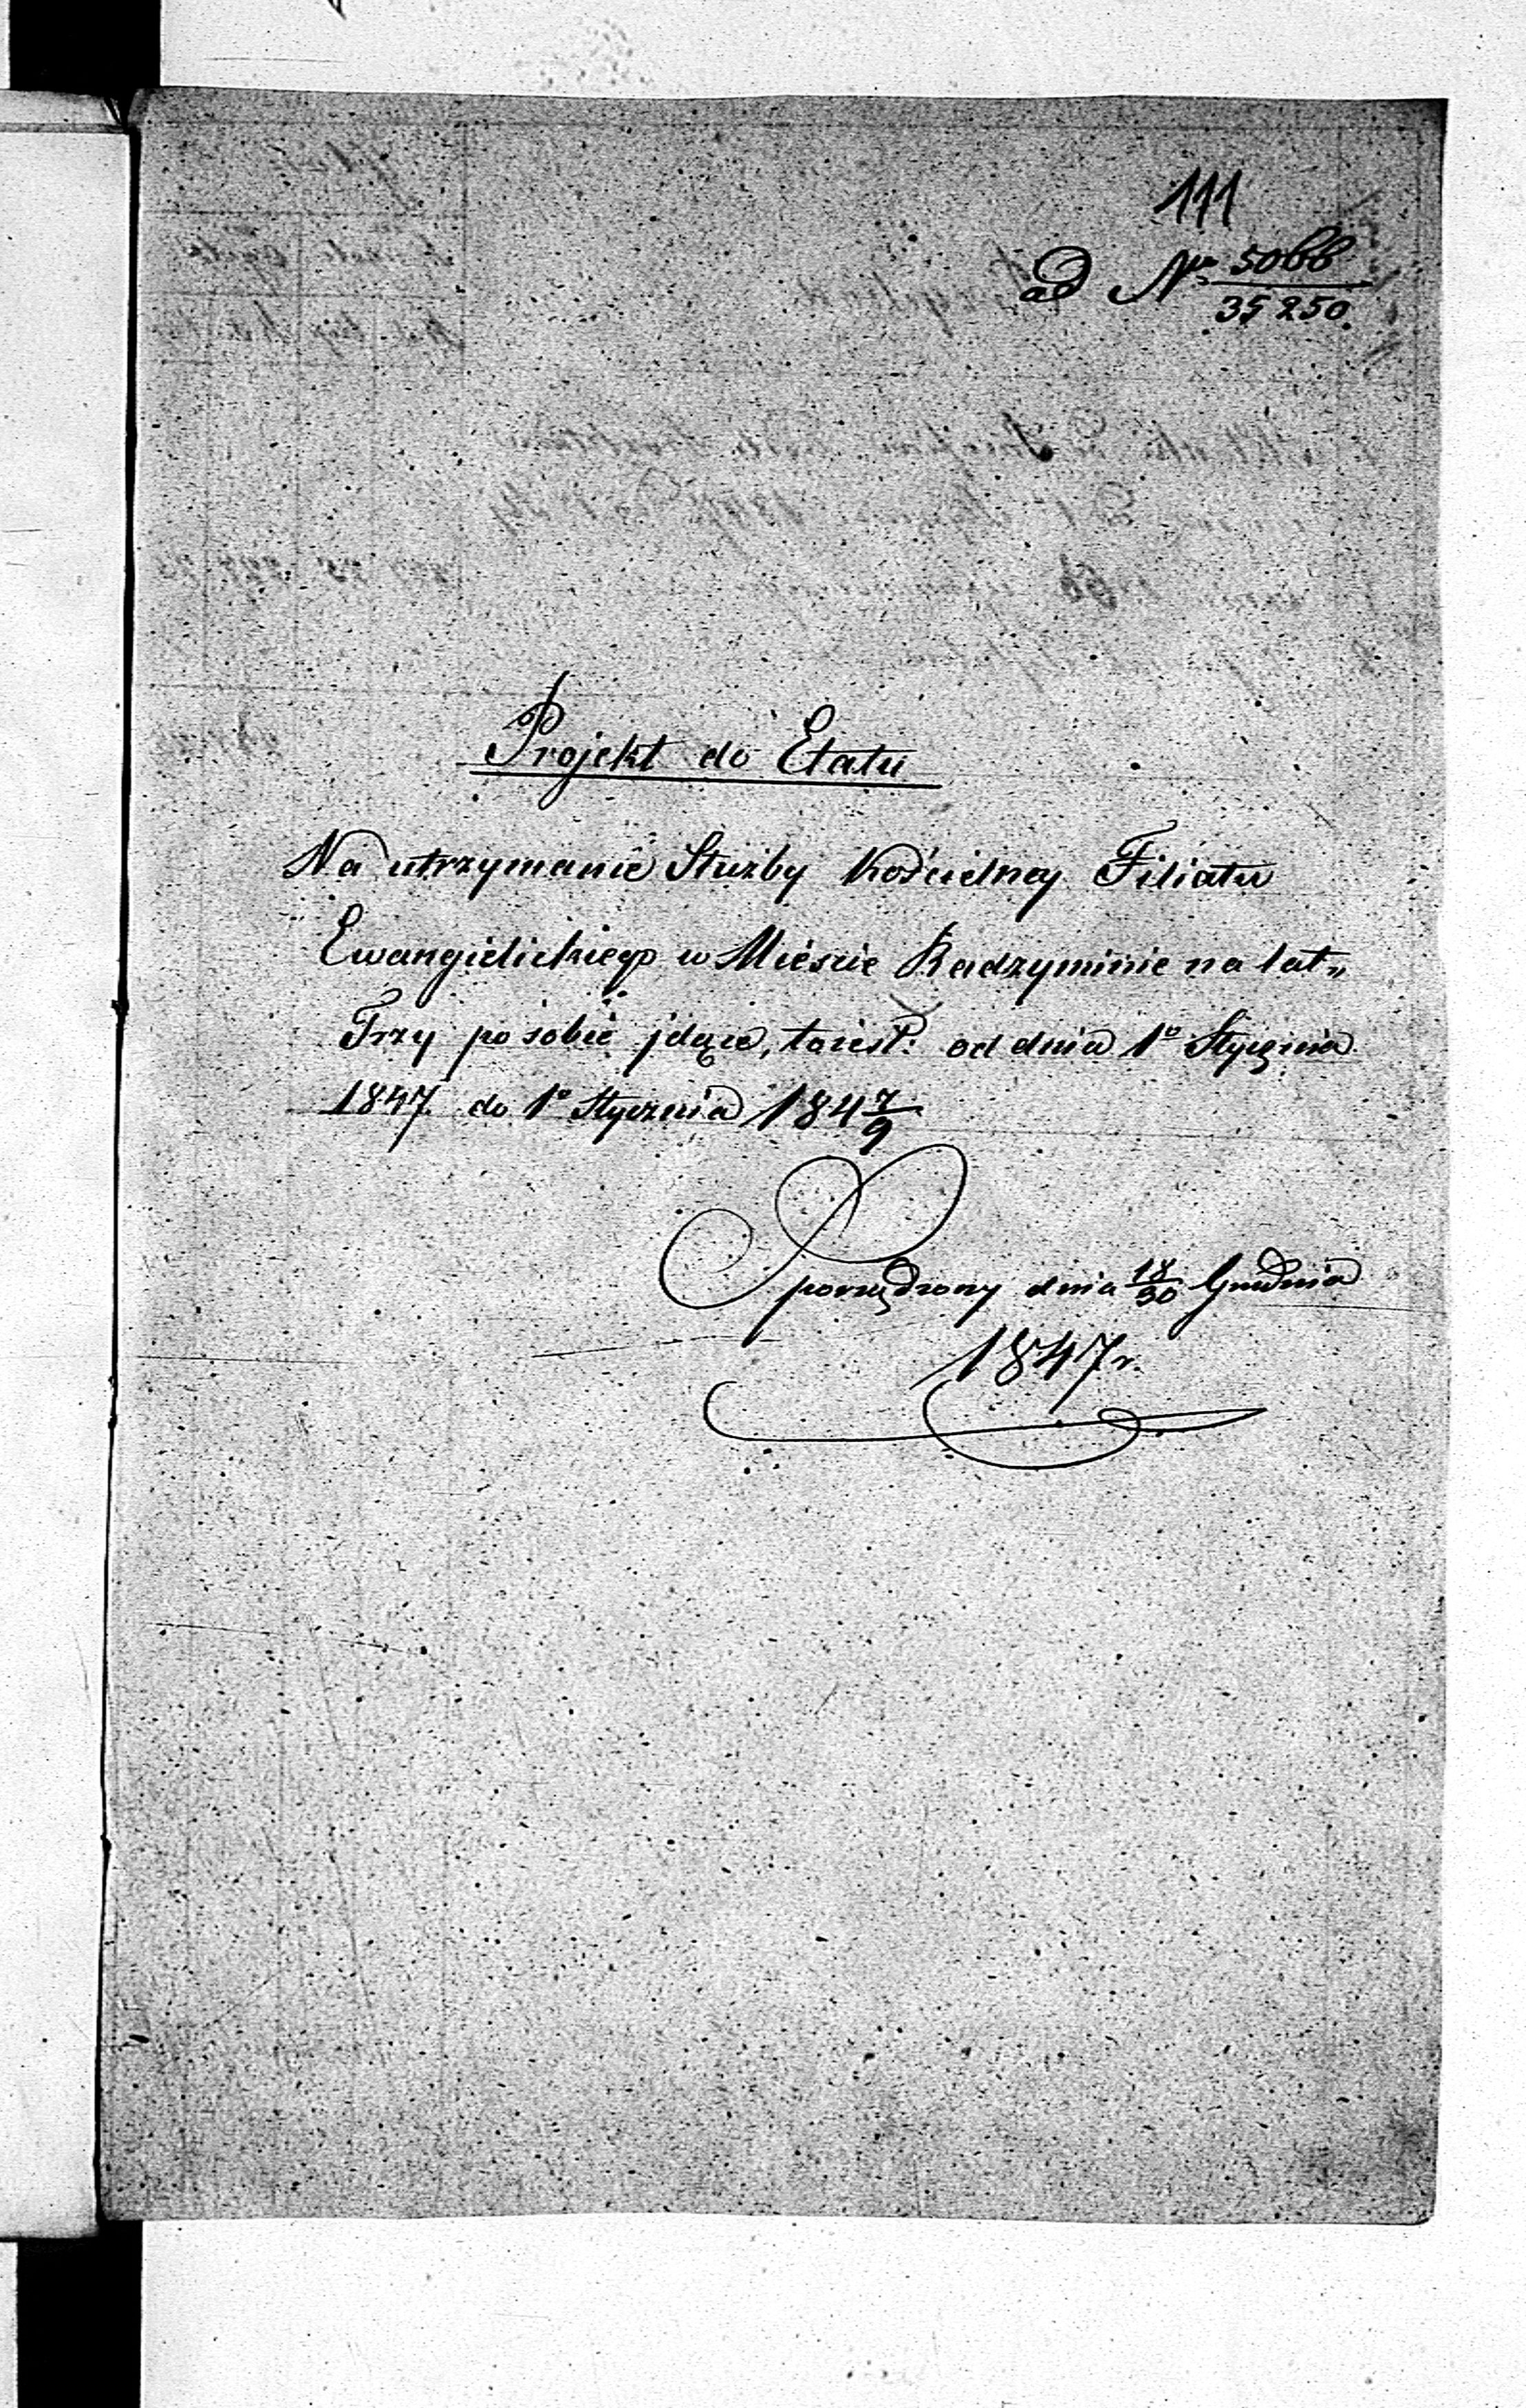 111
ad Nr 5066/35250.
Projekt do Etatu
Na utrzymanie Służby Kościelney Filiału
Ewangielickiego w Mieście Radzyminie na lat„
Trzy po sobie jdące, to iest: od dnia 1o Stycznia
1847. do 1o Stycznia 184 7/9
Sporządzony dnia 18/30 Grudnia
1847 r.